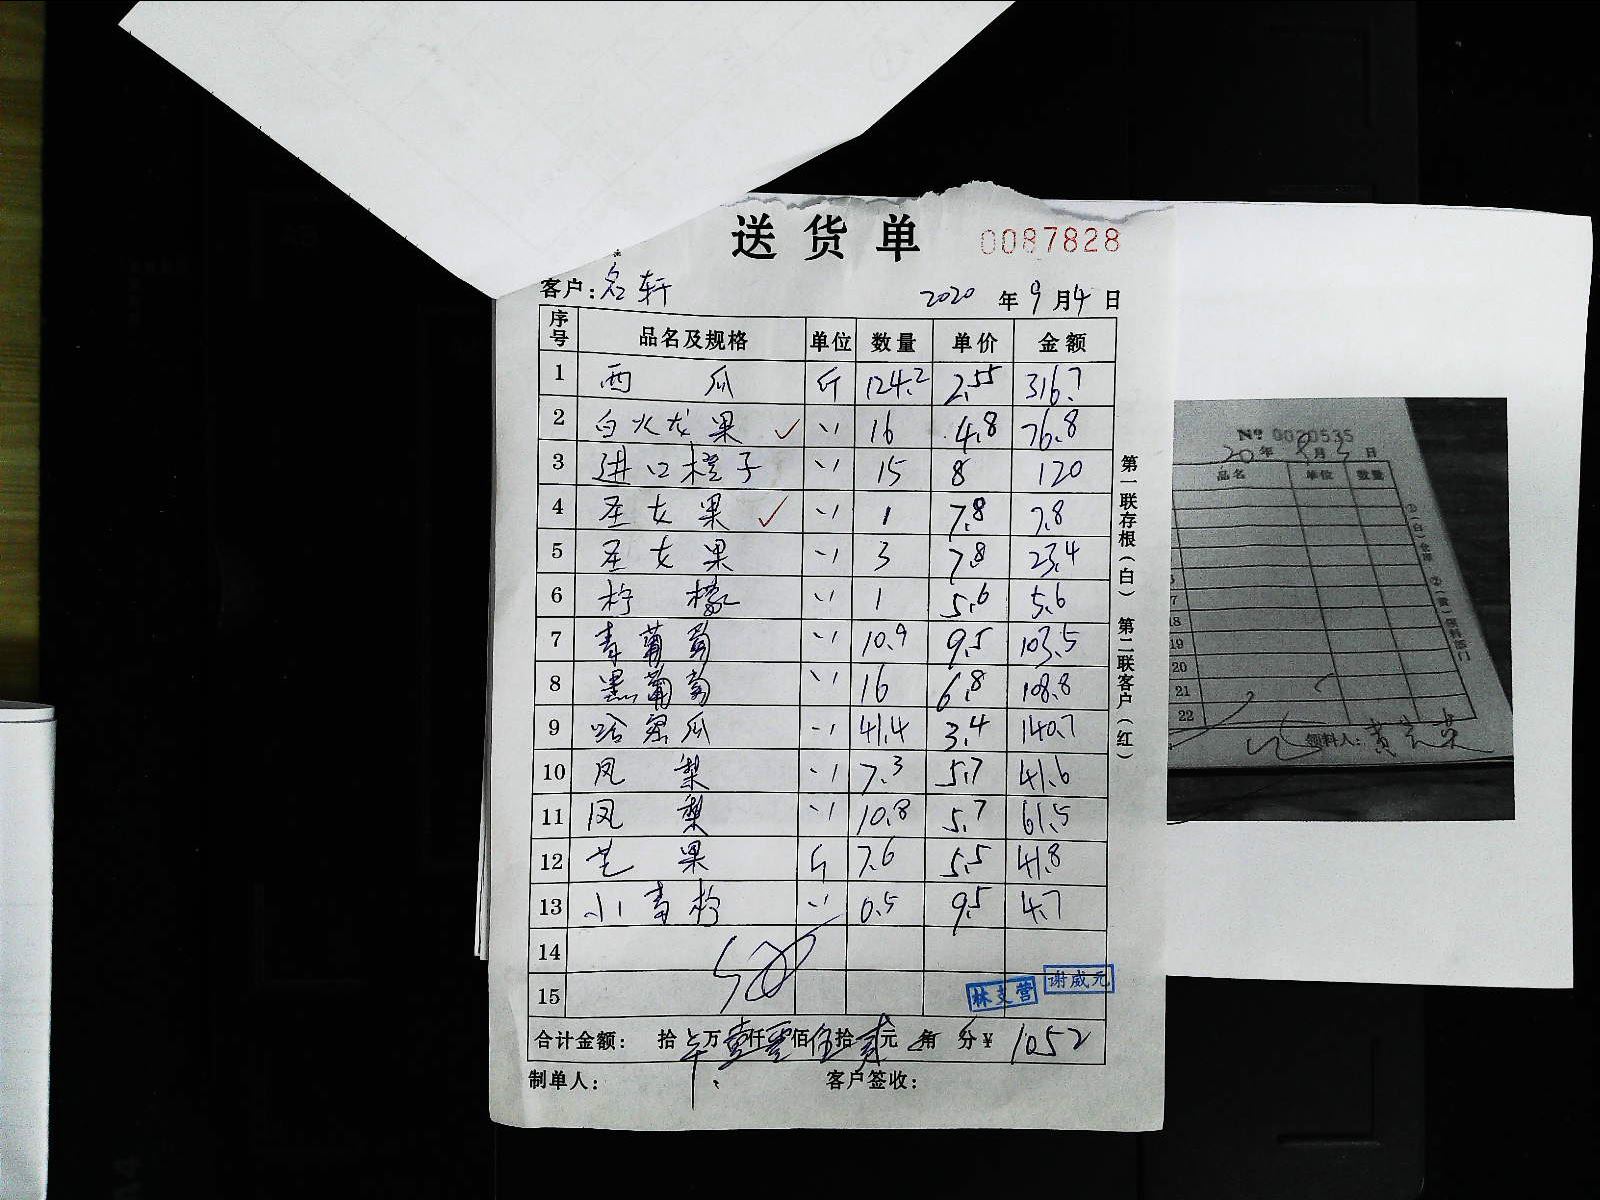 送货单 0087828
客户: 名轩 2020 年 9 月 4 日
序号 品名及规格 单位 数量 单价 金额
1 西瓜 斤 124.2 2.55 316.7
2 白火龙果 ✓ 〃 16 4.8 76.8
3 进口橙子 〃 15 8 120
4 圣女果 ✓ 〃 1 7.8 7.8
5 圣女果 〃 3 7.8 23.4
6 柠檬 〃 1 5.6 5.6
7 青葡萄 〃 10.9 9.5 103.5
8 黑葡萄 〃 16 6.8 108.8
9 哈密瓜 〃 41.4 3.4 140.7
10 凤梨 〃 7.3 5.7 41.6
11 凤梨 〃 10.8 5.7 61.5
12 芒果 斤 7.6 5.5 41.8
13 小青柠 〃 0.5 9.5 4.7
14
15
林支营 谢威元
合计金额: 拾 万壹仟零佰伍拾贰元 角 分 ¥ 1052
制单人: 客户签收:
第一联存根(白) 第二联客户(红)
Nº 0020535
20 年 8 月 3 日
品名 单位 数量
18
19
20
21
22
领料人: